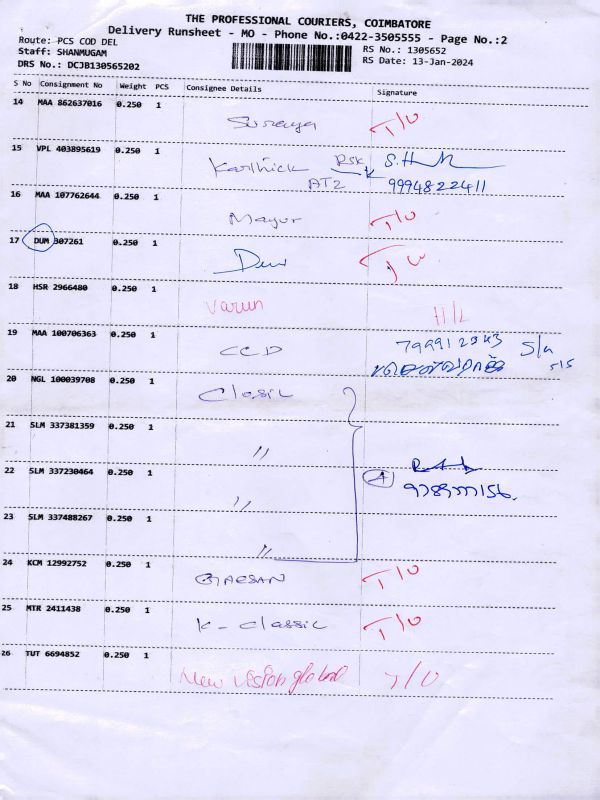 THE PROFESSIONAL COURIERS, COIMBATORE
Delivery Runsheet - MO - Phone No.:0422-3505555 - Page No.:2
Route: PCS COD DEL
RS No.: 1305652
Staff: SHANMUGAM
RS Date: 13-Jan-2024
DRS No.: DCJB130565202
S No Consignment No Weight PCS Consignee Details Signature
14 MAA 862637016 0.250 1
Suraya T/O
15 VPL 403895619 0.250 1
Karthick RSK S.H
AT2 9994822411
16 MAA 107762644 0.250 1
Mayur T/O
17 DUM 307261 0.250 1
18 HSR 2966480 0.250 1
Varun
19 MAA 100706363 0.250 1
CCD
20 NGL 100039708 0.250 1
Classic
21 SLM 337381359 0.250 1
"
22 SLM 337230464 0.250 1
"
23 SLM 337488267 0.250 1
"
24 KCM 12992752 0.250 1
T/O
25 MTR 2411438 0.250 1
K - Classic T/O
26 TUT 6694852 0.250 1
New Vision global T/O